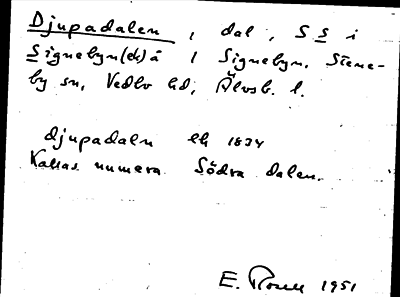 Djupadalen, dal, S S i
Signebyn(ek)å i Signebyn. Stene-
by sn, Vedbo hd, Älvsb. l.
Djupadaln ek 1834
Kallas numera Södra dalen.
E. 1951